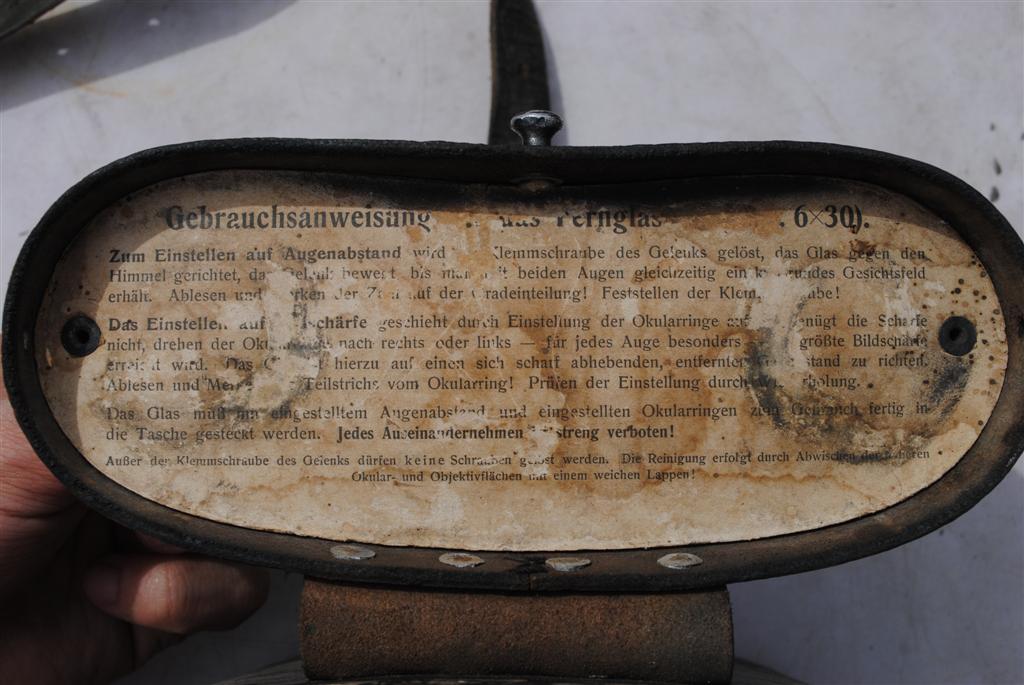 Gebrauchsanweisung das Fernglas 6×30).
Zum Einstellen auf Augenabstand wird Klemmschraube des Gelenks gelöst, das Glas gegen den
Himmel gerichtet, das Gelenk bewegt, bis man mit beiden Augen gleichzeitig ein Gesichtsfeld
erhält. Ablesen und der auf der Gradeinteilung! Feststellen der
Das Einstellen auf geschieht durch Einstellung der Okularringe die Schärfe
nicht, drehen der nach rechts oder links — für jedes Auge besonders größte Bildschärfe
erreicht wird. Das hierzu auf einen sich scharf abhebenden, entfernten zu richten.
Ablesen und Teilstrichs vom Okularring! Prüfen der Einstellung durch
Das Glas muß mit eingestelltem Augenabstand und eingestellten Okularringen zum Gebrauch fertig in
die Tasche gesteckt werden. Jedes Auseinandernehmen streng verboten!
Außer der Klemmschraube des Gelenks dürfen keine Schrauben gelöst werden. Die Reinigung erfolgt durch Abwischen der äußeren
Okular- und Objektivflächen mit einem weichen Lappen!